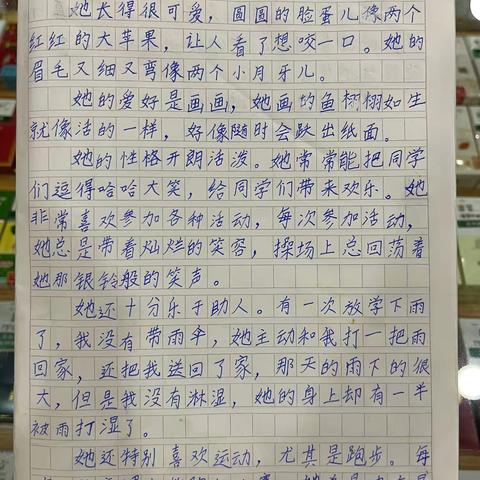 她长得很可爱，圆圆的脸蛋儿像两个
红红的大苹果，让人看了想咬一口。她的
眉毛又细又弯像两个小月牙儿。
她的爱好是画画，她画的鱼栩栩如生
就像活的一样，好像随时会跃出纸面。
她的性格开朗活泼。她常常能把同学
们逗得哈哈大笑，给同学们带来欢乐。她
非常喜欢参加各种活动，每次参加活动，
她总是带着灿烂的笑容，操场上总回荡着
她那银铃般的笑声。
她还十分乐于助人。有一次放学下雨
了，我没有带雨伞，她主动和我打一把雨
回家，还把我送回了家，那天的雨下的很
大，但是我没有淋湿，她的身上却有一半
被雨打湿了。
她还特别喜欢运动，尤其是跑步。每